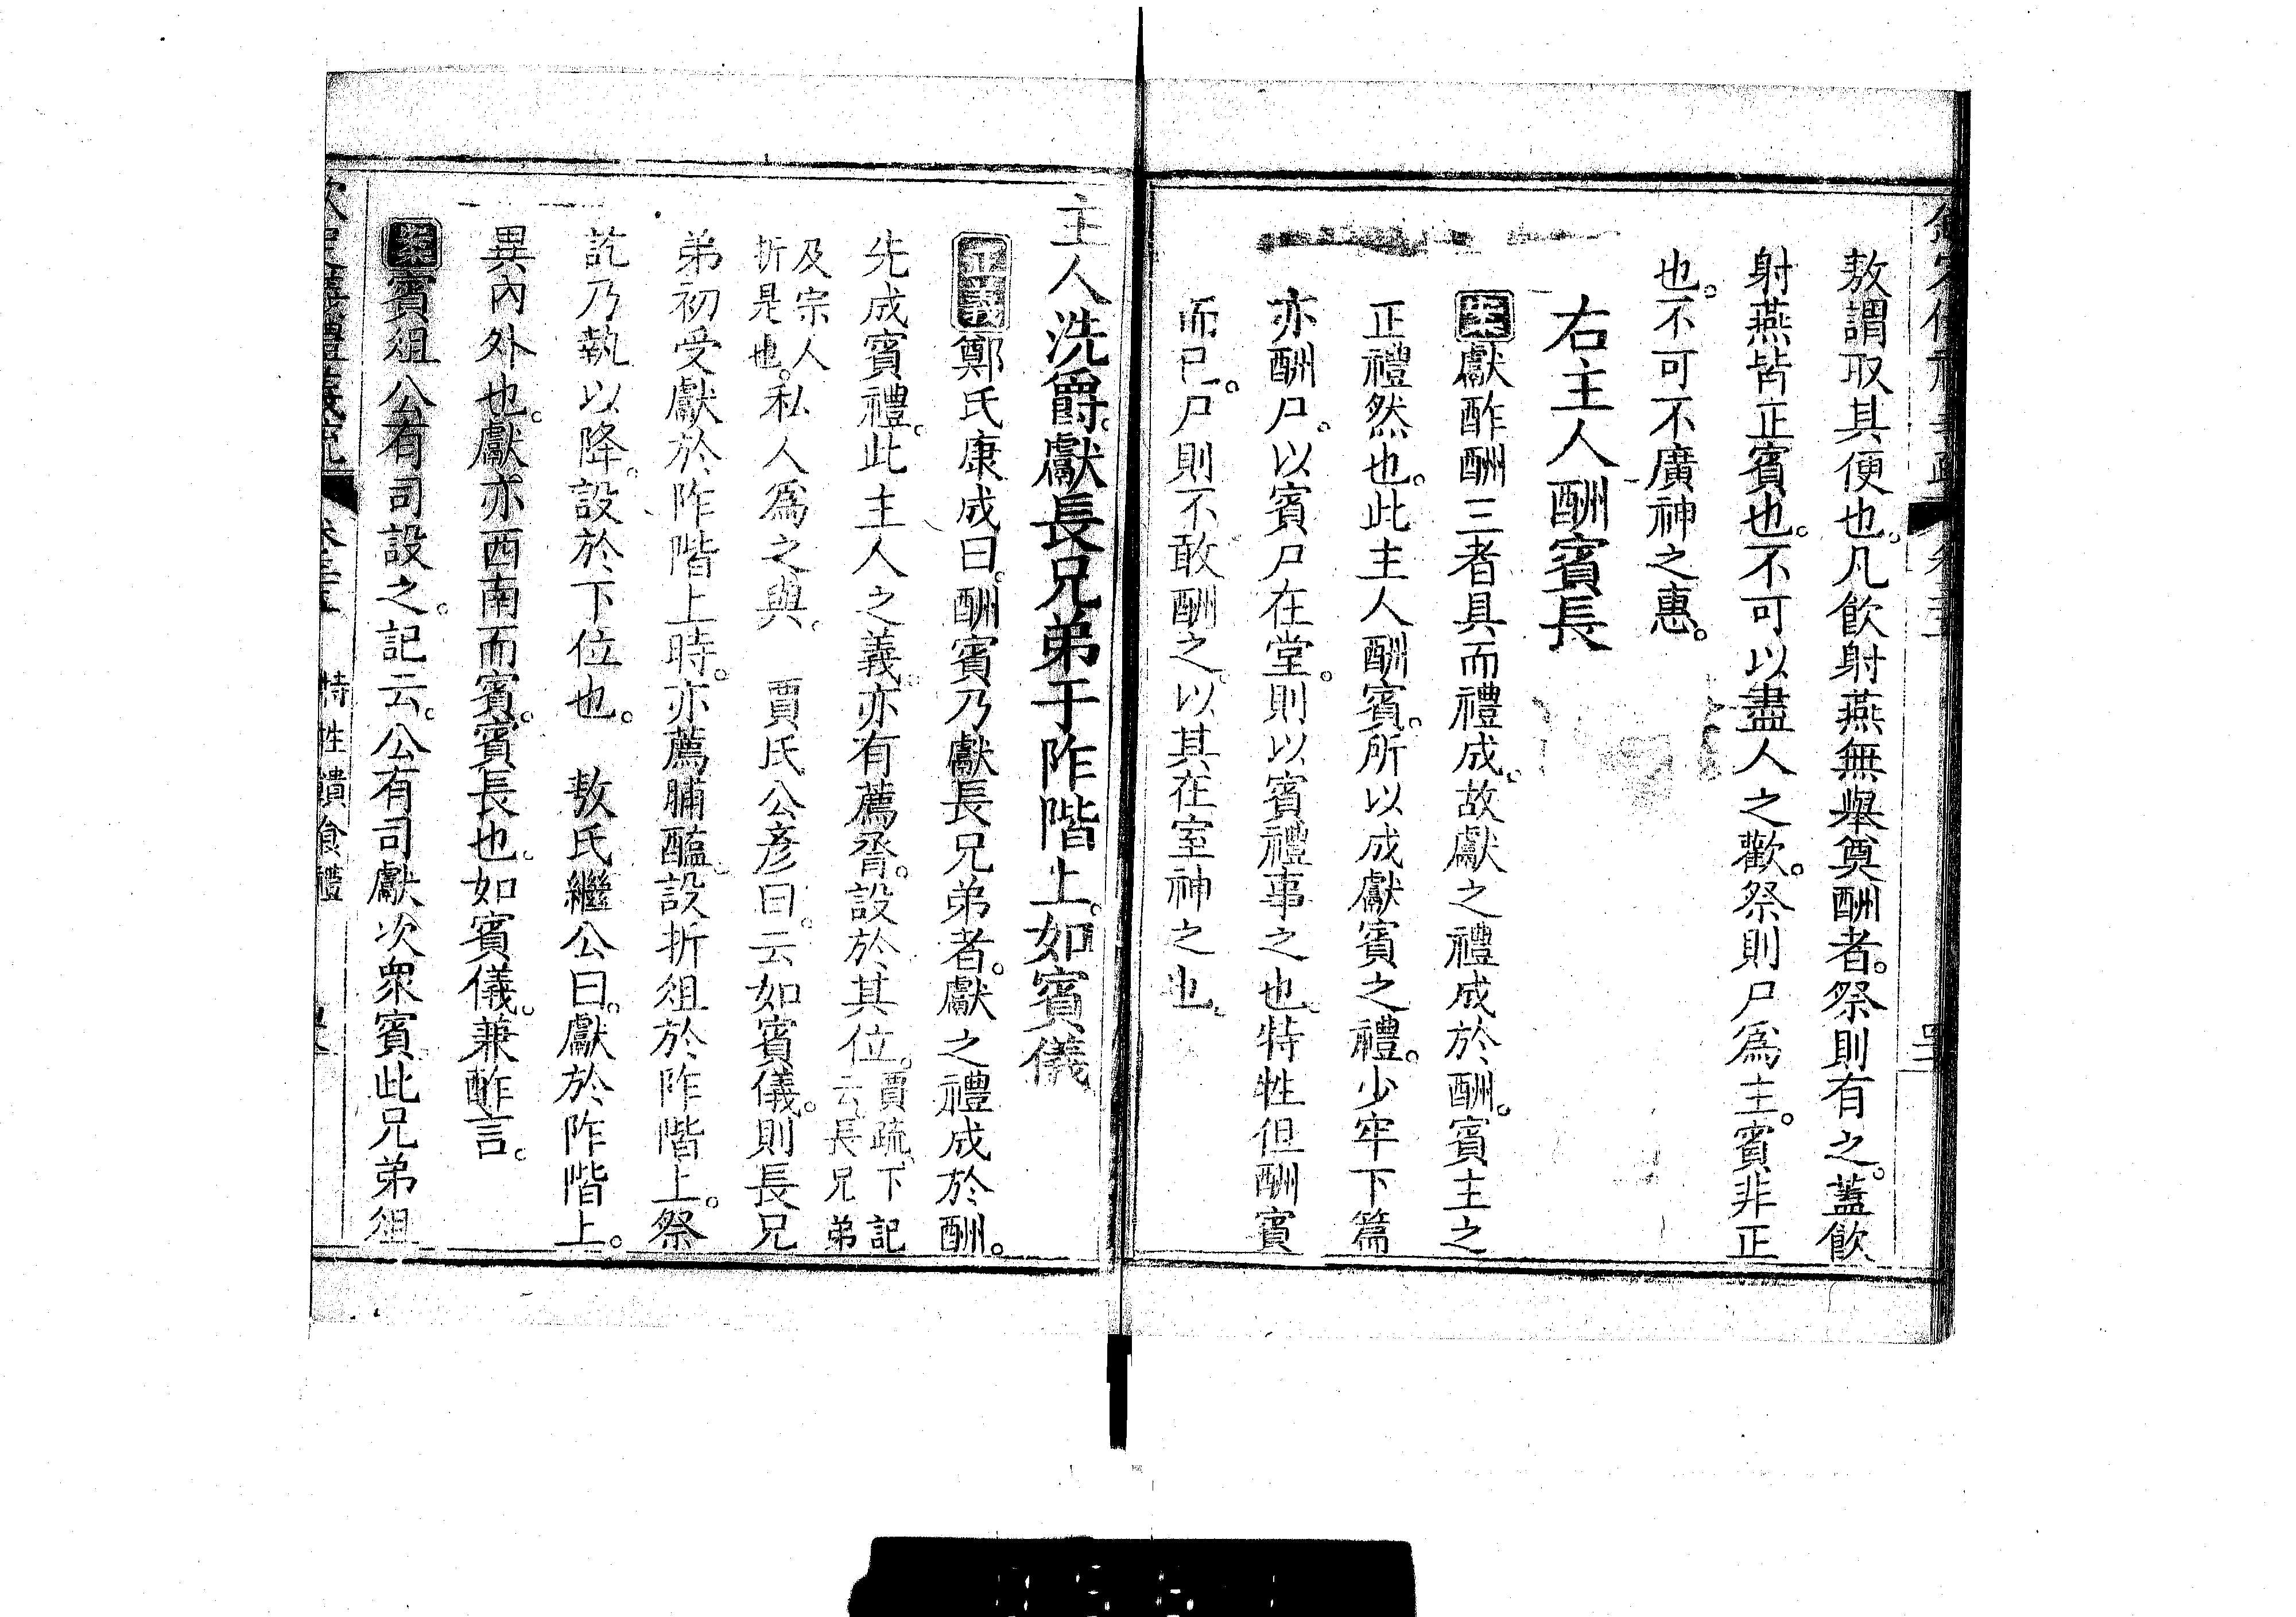 敖謂取其便也。凡飮射燕無舉奠酬者。祭則有之。蓋飮
射燕皆正賓也。不可以盡人之歡。祭則尸爲主。賓非正
也。不可不廣神之惠。
右主人酬賓長
案獻酢酬三者具而禮成。故獻之禮成於酬。賓主之
正禮然也。此主人酬賓。所以成獻賓之禮。少牢下篇
亦酬尸。以賓尸在堂。則以賓禮事之也。特牲但酬賓
而已。尸則不敢酬之。以其在室神之也。
主人洗爵。獻長兄弟于阼階上。如賓儀
正義鄭氏康成曰。酬賓乃獻長兄弟者。獻之禮成於酬。
先成賓禮。此主人之義。亦有薦脀。設於其位。賈疏。下記
云。長兄弟
及宗人
折是也。私人爲之與。 賈氏公彥曰。云如賓儀。則長兄
弟初受獻於阼階上時。亦薦脯醢。設折俎於阼階上。祭
訖乃執以降。設於下位也。 敖氏繼公曰。獻於阼階上。
異內外也。獻亦西南面賓。賓長也。如賓儀。兼酢言。
案賓俎公有司設之。記云。公有司獻次衆賓。此兄弟俎
特牲饋食禮